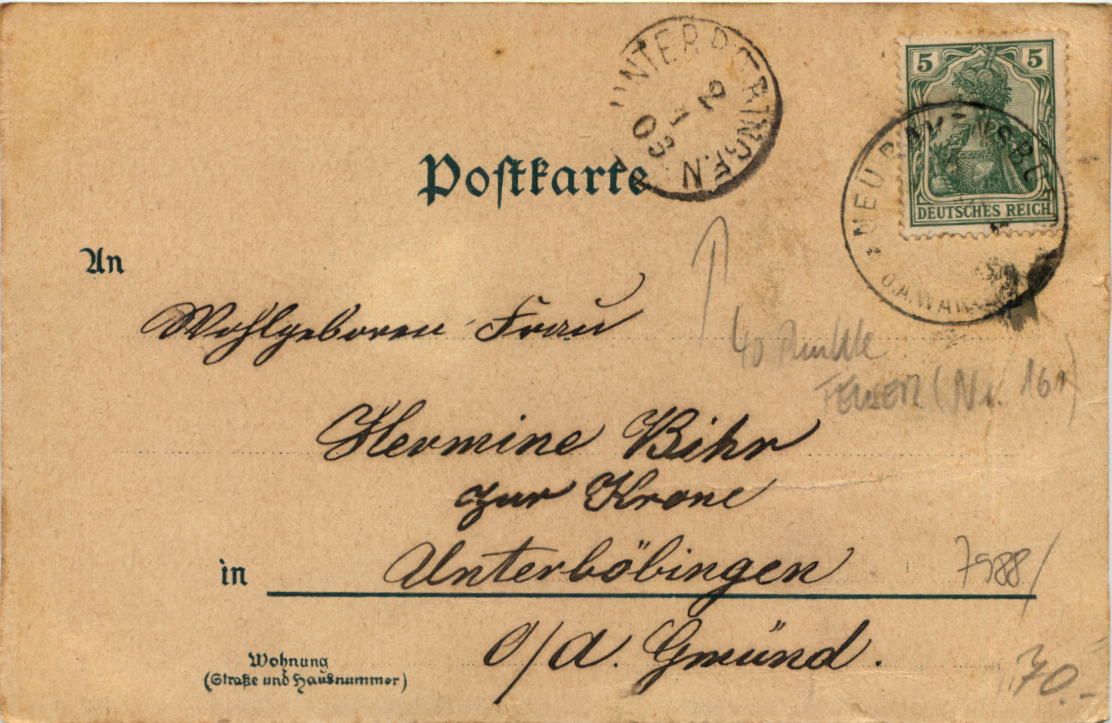 UNTERBOBINGEN
2
1
03
5 5
DEUTSCHES REICH
NEURAVENSBURG
O.A. WANGEN
Postkarte
An
Wohlgeboren Frau
40 Punkte
(Nr. 161)
Hermine Bihr
zur Krone
in Unterböbingen
7988/
O/A. Gmünd.
Wohnung
(Straße und Hausnummer)
70.-